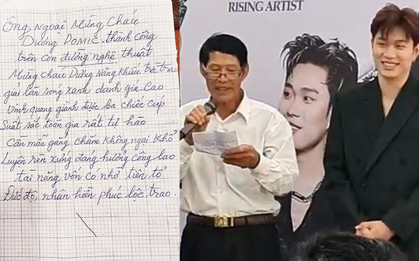 Ông Ngoại Mừng Cháu
Dương DOMIC thành công
trên con đường nghệ thuật
Mừng cháu Dương Năng Khiếu trẻ trao
giai làn sóng xanh danh gia Cao
Vinh quang giành được ba chiếc cup
Suất sắc toàn gia rất tự hào
Cần mẫn gắng chăm không ngại khổ
Luyện rèn xứng đáng hưởng công lao
tài năng vốn có nhờ tiên tổ
Đức độ, nhân hiền phúc lộc trao.
RISING ARTIST